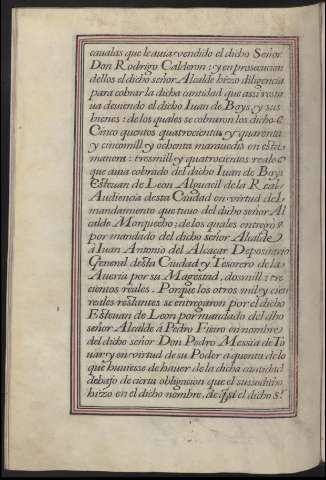 caualas que le auia vendido el dicho Señor
Don Rodrigo Calderon: y en prosecucion
dellos el dicho señor Alcalde hizo diligencia
para cobrar la dicha cantidad que assi resta
ua deuiendo el dicho Iuan de Boys, y sus
bienes: de los quales se cobraron los dichos
Cinco quentos quatrocientas y quarenta
y cinco mill y ochenta marauedis en esta
manera: tres mill y quatrocientos reales
que auia cobrado del dicho Iuan de Boys
Esteuan de Leon Alguacil de la Real
Audiencia desta Ciudad en virtud del
mandamiento que tuuo del dicho señor Al
calde Morquecho: de los quales entregó
por mandado del dicho señor Alcalde
à Iuan Antonio del Alcaçar Depositario
General desta Ciudad y Tesorero de la
Aueria por su Magestad, dos mill: tre
cientos reales. Porque los otros mil y cien
reales restantes se entregaron por el dicho
Esteuan de Leon por mandado del dho
señor Alcalde á Pedro Fijiro en nombre
del dicho señor Don Pedro Messia de To
uar y en virtud de su Poder a quenta de lo
que huuiesse de hauer de la dicha cantidad
debajo de cierta obligacion que el susodicho
hizo en el dicho nombre, de q̃ si el dicho S.r